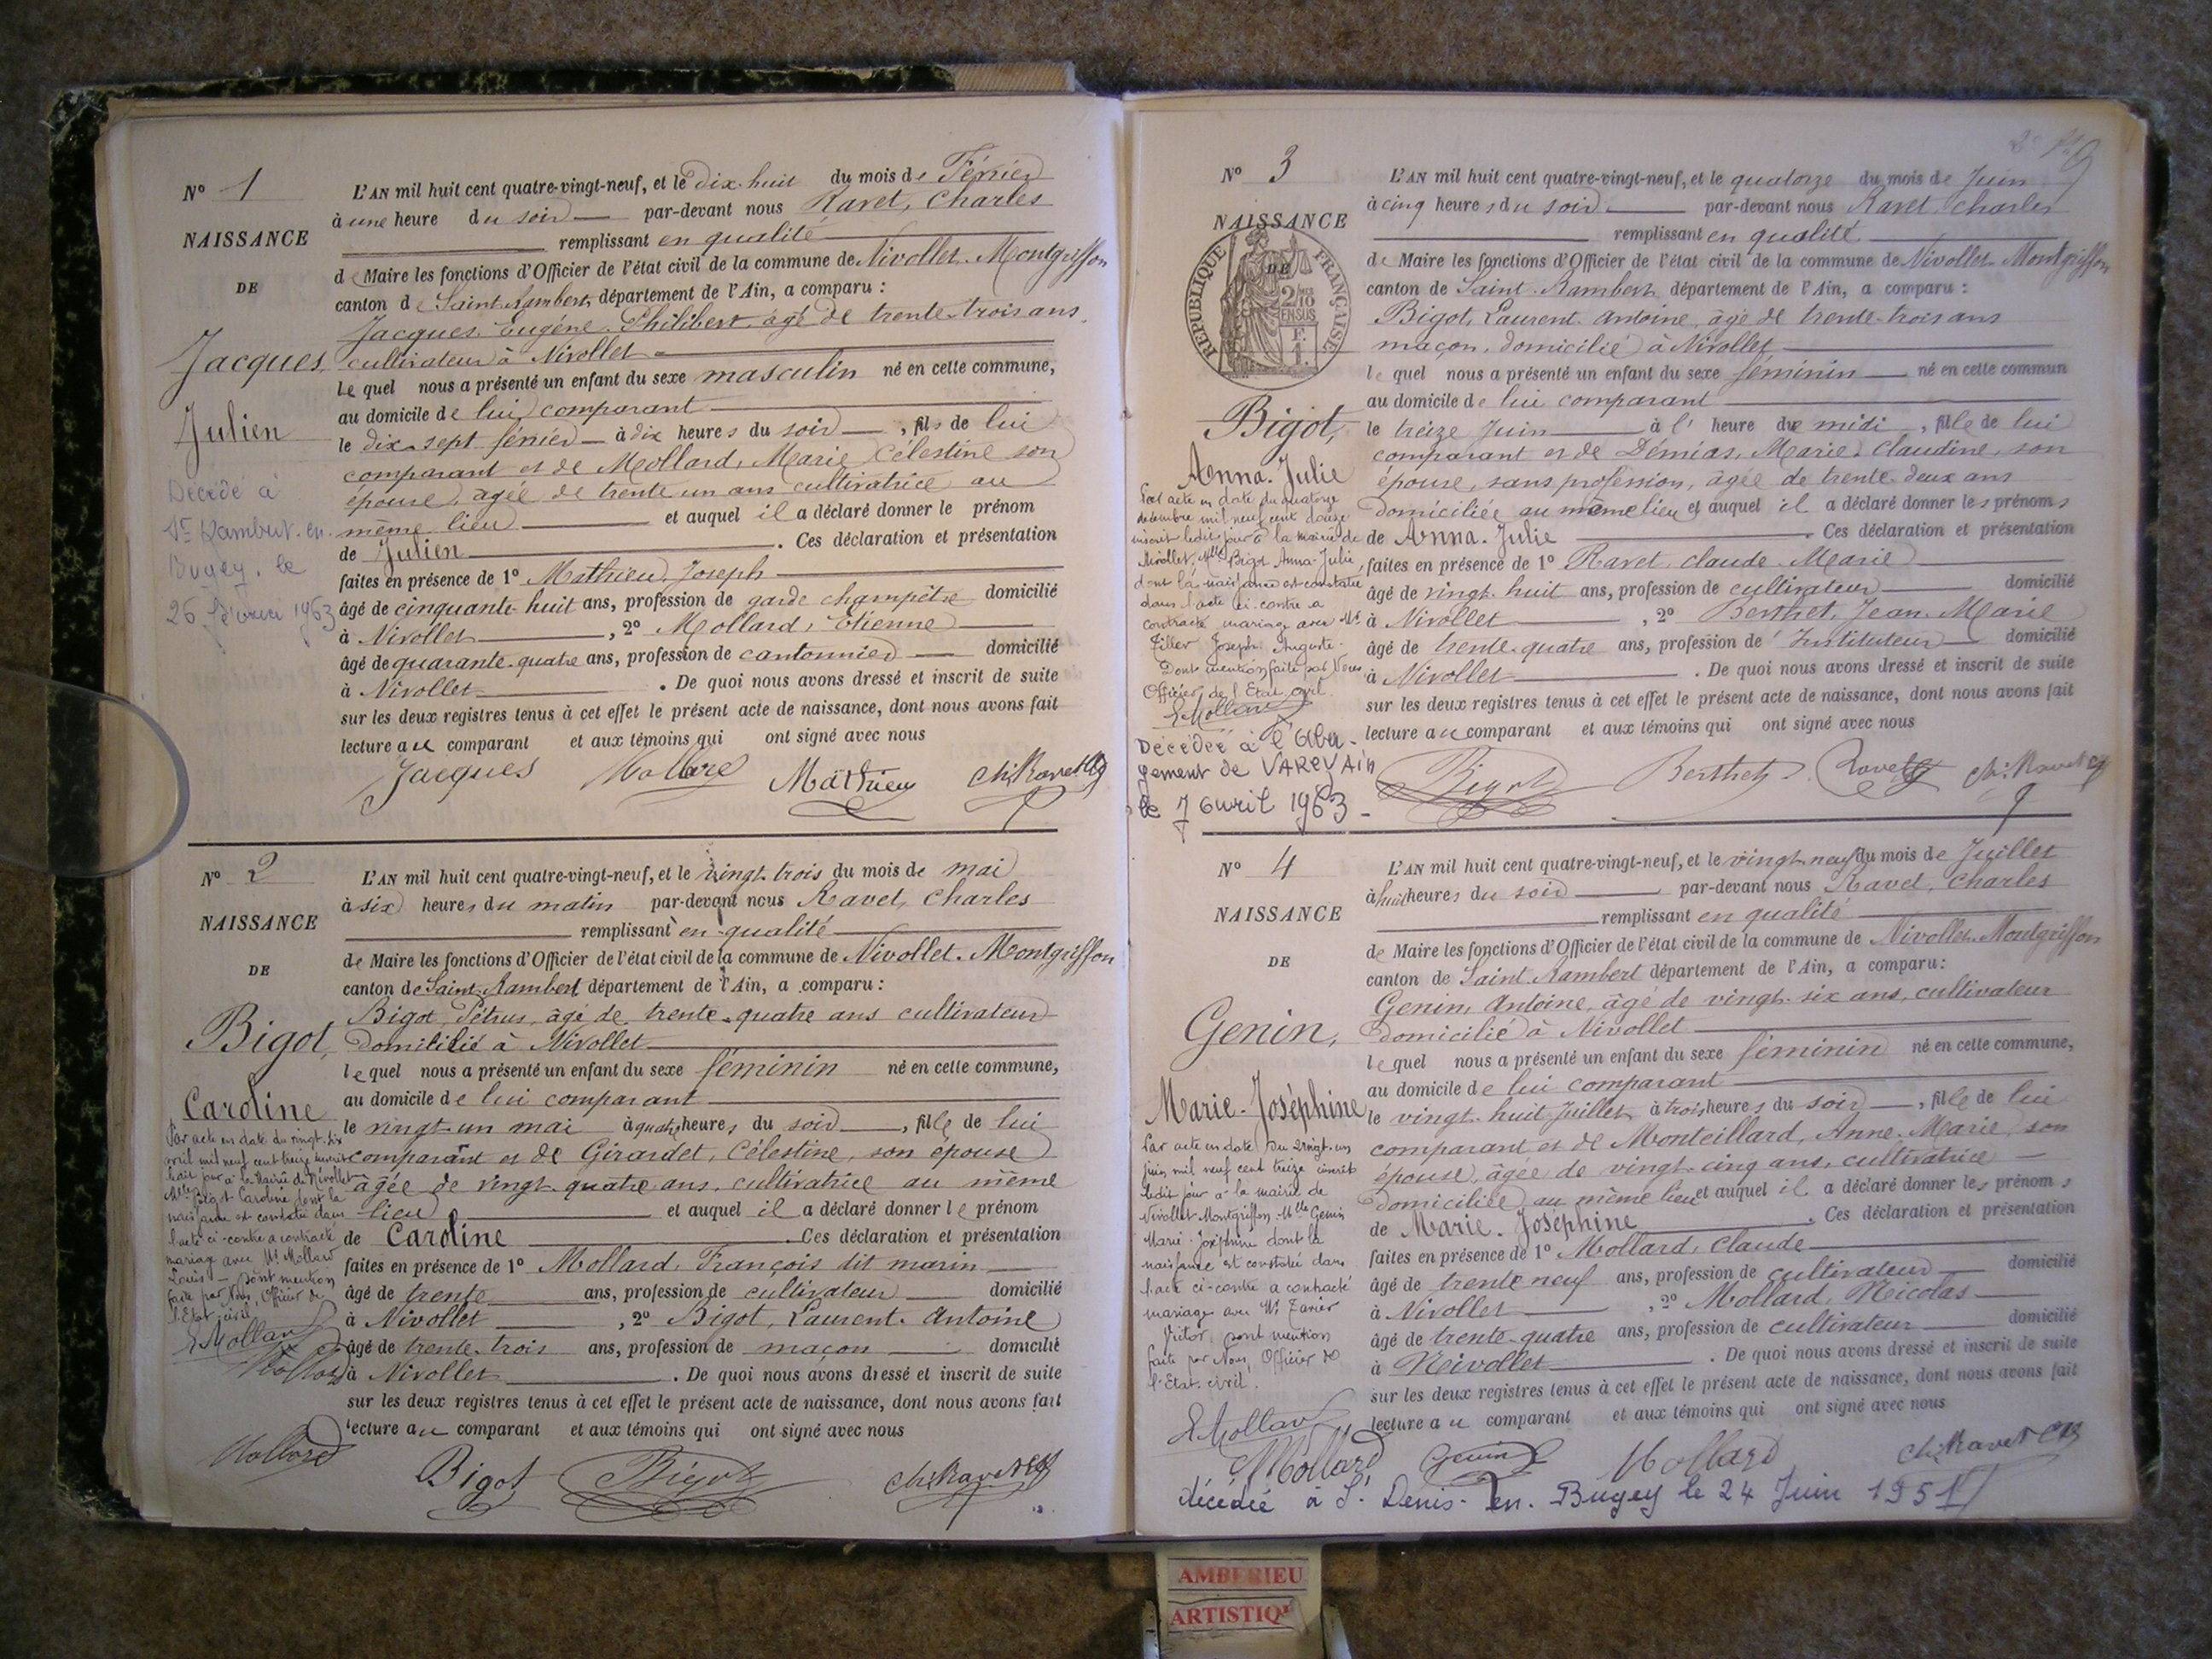 N° 1
NAISSANCE
DE
Jacques,
Julien
Décédé à
St Rambert-en-
Bugey, le
26 février 1963
L'AN mil huit cent quatre-vingt-neuf, et le dix-huit du mois de Février
à une heure du soir par-devant nous Ravet, Charles
remplissant en qualité
de Maire les fonctions d'Officier de l'état civil de la commune de Nivollet-Montgriffon
canton de Saint-Rambert, département de l'Ain, a comparu :
Jacques, Eugène-Philibert, âgé de trente-trois ans,
cultivateur à Nivollet
lequel nous a présenté un enfant du sexe masculin né en cette commune,
au domicile de lui comparant
le dix-sept février à dix heures du soir, fils de lui
comparant et de Mollard, Marie Célestine son
épouse, âgée de trente un ans cultivatrice au
même lieu et auquel il a déclaré donner le prénom
de Julien. Ces déclaration et présentation
faites en présence de 1° Mathieu, Joseph
âgé de cinquante-huit ans, profession de garde champêtre domicilié
à Nivollet, 2° Mollard, Etienne
âgé de quarante-quatre ans, profession de cantonnier domicilié
à Nivollet. De quoi nous avons dressé et inscrit de suite
sur les deux registres tenus à cet effet le présent acte de naissance, dont nous avons fait
lecture au comparant et aux témoins qui ont signé avec nous
Jacques Mollard Mathieu Ch. Ravet
N° 2
NAISSANCE
DE
Bigot,
Caroline
Par acte en date du vingt-six
avril mil neuf cent treize inscrit
ledit jour à la Mairie de Nivollet
Mlle Bigot Caroline dont la
naissance est constatée dans
l'acte ci-contre a contracté
mariage avec Mr Mollard
Louis - Dont mention
faite par Nous, Officier de
l'Etat-civil
E. Mollard
Mollard
L'AN mil huit cent quatre-vingt-neuf, et le vingt-trois du mois de mai
à six heures du matin par-devant nous Ravet, Charles
remplissant en qualité
de Maire les fonctions d'Officier de l'état civil de la commune de Nivollet-Montgriffon
canton de Saint-Rambert département de l'Ain, a comparu :
Bigot, Pétrus, âgé de trente-quatre ans cultivateur
domicilié à Nivollet
lequel nous a présenté un enfant du sexe féminin né en cette commune,
au domicile de lui comparant
le vingt-un mai à quatre heures du soir, fille de lui
comparant et de Girardet, Célestine, son épouse
âgée de vingt-quatre ans, cultivatrice au même
lieu et auquel il a déclaré donner le prénom
de Caroline. Ces déclaration et présentation
faites en présence de 1° Mollard, François dit marin
âgé de trente ans, profession de cultivateur domicilié
à Nivollet, 2° Bigot, Laurent-Antoine
âgé de trente-trois ans, profession de maçon domicilié
à Nivollet. De quoi nous avons dressé et inscrit de suite
sur les deux registres tenus à cet effet le présent acte de naissance, dont nous avons fait
lecture au comparant et aux témoins qui ont signé avec nous
Mollard Bigot Bigot Ch. Ravet
N° 3
NAISSANCE
DE
RÉPUBLIQUE FRANÇAISE
2/10 EN SUS
F. 1.
Bigot,
Anna-Julie
Par acte en date du quatorze
décembre mil neuf cent douze
inscrit ledit jour à la mairie de
Nivollet, Mlle Bigot Anna-Julie
dont la naissance est constatée
dans l'acte ci-contre a
contracté mariage avec Mr
Tiller Joseph Auguste.
Dont mention faite par Nous
Officier de l'Etat-civil.
E. Mollard
Décédée à l'Aber-
gement de VAREY Ain
le 7 avril 1963 -
L'AN mil huit cent quatre-vingt-neuf, et le quatorze du mois de Juin
à cinq heures du soir par-devant nous Ravet, Charles
remplissant en qualité
de Maire les fonctions d'Officier de l'état civil de la commune de Nivollet-Montgriffon
canton de Saint-Rambert, département de l'Ain, a comparu :
Bigot, Laurent-Antoine, âgé de trente-trois ans
maçon, domicilié à Nivollet
lequel nous a présenté un enfant du sexe féminin né en cette commun
au domicile de lui comparant
le treize Juin à l' heure de midi, fille de lui
comparant et de Démias, Marie-Claudine, son
épouse, sans profession, âgée de trente-deux ans
domiciliée au même lieu et auquel il a déclaré donner les prénoms
de Anna-Julie. Ces déclaration et présentation
faites en présence de 1° Ravet, Claude-Marie
âgé de vingt-huit ans, profession de cultivateur domicilié
à Nivollet, 2° Berthet, Jean-Marie
âgé de trente-quatre ans, profession d' Instituteur domicilié
à Nivollet. De quoi nous avons dressé et inscrit de suite
sur les deux registres tenus à cet effet le présent acte de naissance, dont nous avons fait
lecture au comparant et aux témoins qui ont signé avec nous
Bigot Berthet Ravet Ch. Ravet
N° 4
NAISSANCE
DE
Genin,
Marie-Joséphine
Par acte en date du vingt-un
juin mil neuf cent treize inscrit
ledit jour à la mairie de
Nivollet-Montgriffon Mlle Genin
Marie-Joséphine dont la
naissance est constatée dans
l'acte ci-contre a contracté
mariage avec Mr Tavier
Victor. Dont mention
faite par Nous, Officier de
l'Etat-civil.
E. Mollard
L'AN mil huit cent quatre-vingt-neuf, et le vingt-neuf du mois de Juillet
à huit heures du soir par-devant nous Ravet, Charles
remplissant en qualité
de Maire les fonctions d'Officier de l'état civil de la commune de Nivollet-Montgriffon
canton de Saint-Rambert département de l'Ain, a comparu :
Genin, Antoine, âgé de vingt-six ans, cultivateur
domicilié à Nivollet
lequel nous a présenté un enfant du sexe féminin né en cette commune,
au domicile de lui comparant
le vingt-huit Juillet à trois heures du soir, fille de lui
comparant et de Monteillard, Anne-Marie, son
épouse, âgée de vingt-cinq ans, cultivatrice
domiciliée au même lieu et auquel il a déclaré donner les prénoms
de Marie-Joséphine. Ces déclaration et présentation
faites en présence de 1° Mollard, Claude
âgé de trente neuf ans, profession de cultivateur domicilié
à Nivollet, 2° Mollard, Nicolas
âgé de trente-quatre ans, profession de cultivateur domicilié
à Nivollet. De quoi nous avons dressé et inscrit de suite
sur les deux registres tenus à cet effet le présent acte de naissance, dont nous avons fait
lecture au comparant et aux témoins qui ont signé avec nous
Mollard Genin Mollard Ch. Ravet
décédée à St Denis-en-Bugey le 24 Juin 1951
AMBERIEU
ARTISTIQUE